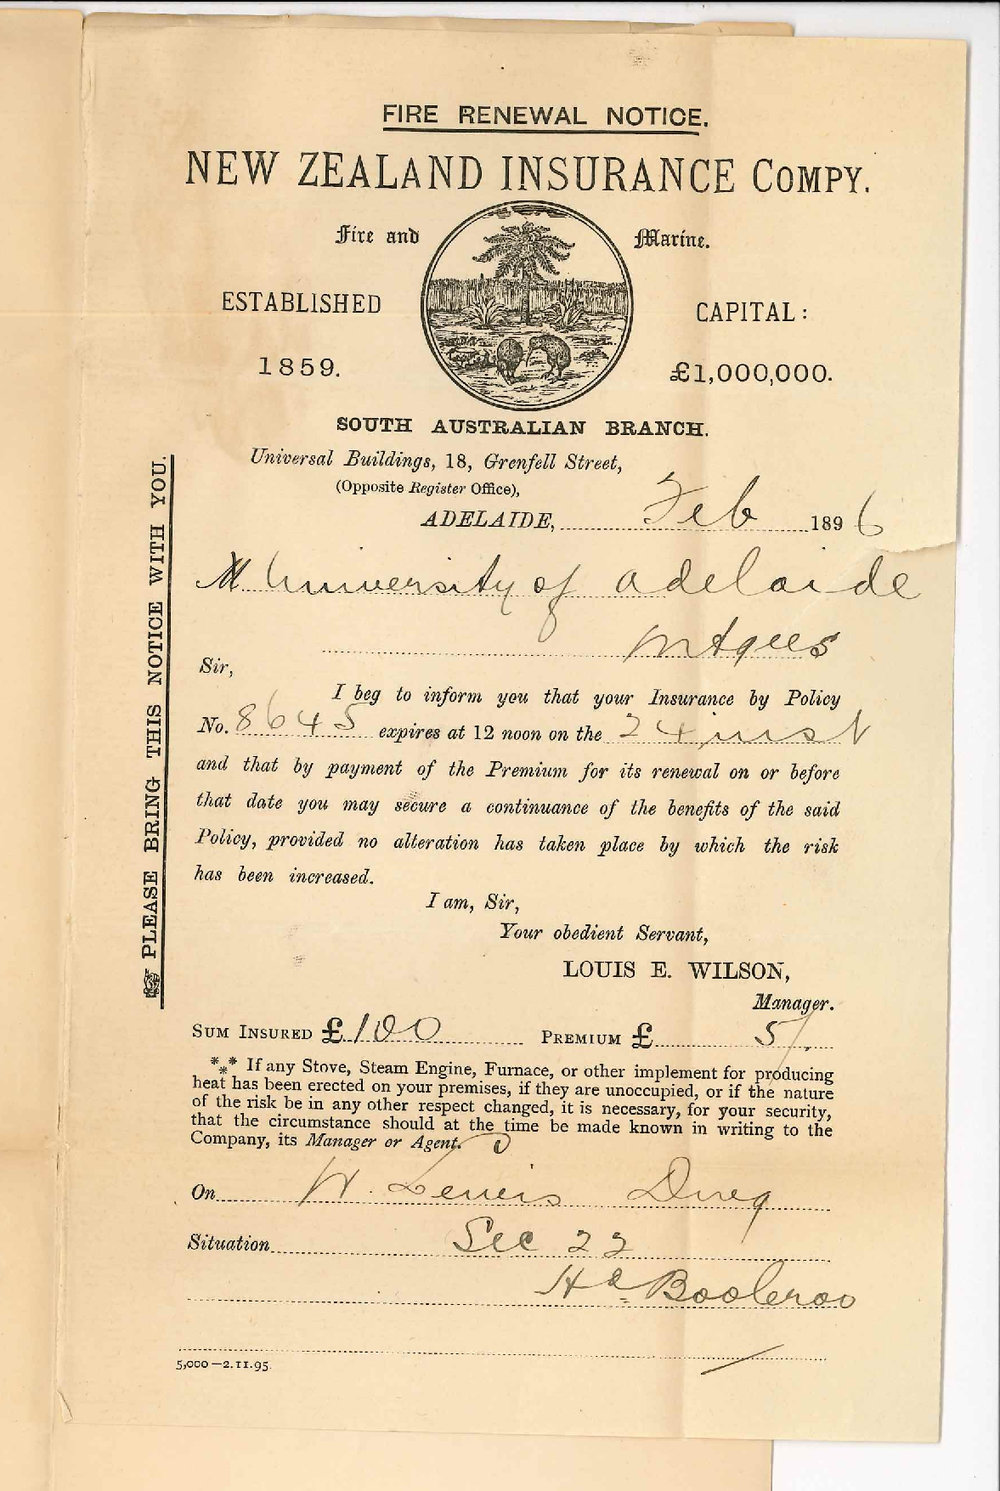 FIRE RENEWAL NOTICE.
NEW ZEALAND INSURANCE COMPY.
Fire and Marine.
ESTABLISHED CAPITAL:
1859. £1,000,000.
SOUTH AUSTRALIAN BRANCH.
Universal Buildings, 18, Grenfell Street,
(Opposite Register Office),
ADELAIDE, Feb 1896
M University of Adelaide
Mtgees
Sir,
I beg to inform you that your Insurance by Policy
No. 8645 expires at 12 noon on the 24 inst
and that by payment of the Premium for its renewal on or before
that date you may secure a continuance of the benefits of the said
Policy, provided no alteration has taken place by which the risk
has been increased.
I am, Sir,
Your obedient Servant,
LOUIS E. WILSON,
Manager.
SUM INSURED £ 100 PREMIUM £ 5/.
*** If any Stove, Steam Engine, Furnace, or other implement for producing
heat has been erected on your premises, if they are unoccupied, or if the nature
of the risk be in any other respect changed, it is necessary, for your security,
that the circumstance should at the time be made known in writing to the
Company, its Manager or Agent.
On W. Lewis Dwg
Situation Sec 22
Hd Booleroo
5,000—2.11.95.
PLEASE BRING THIS NOTICE WITH YOU.